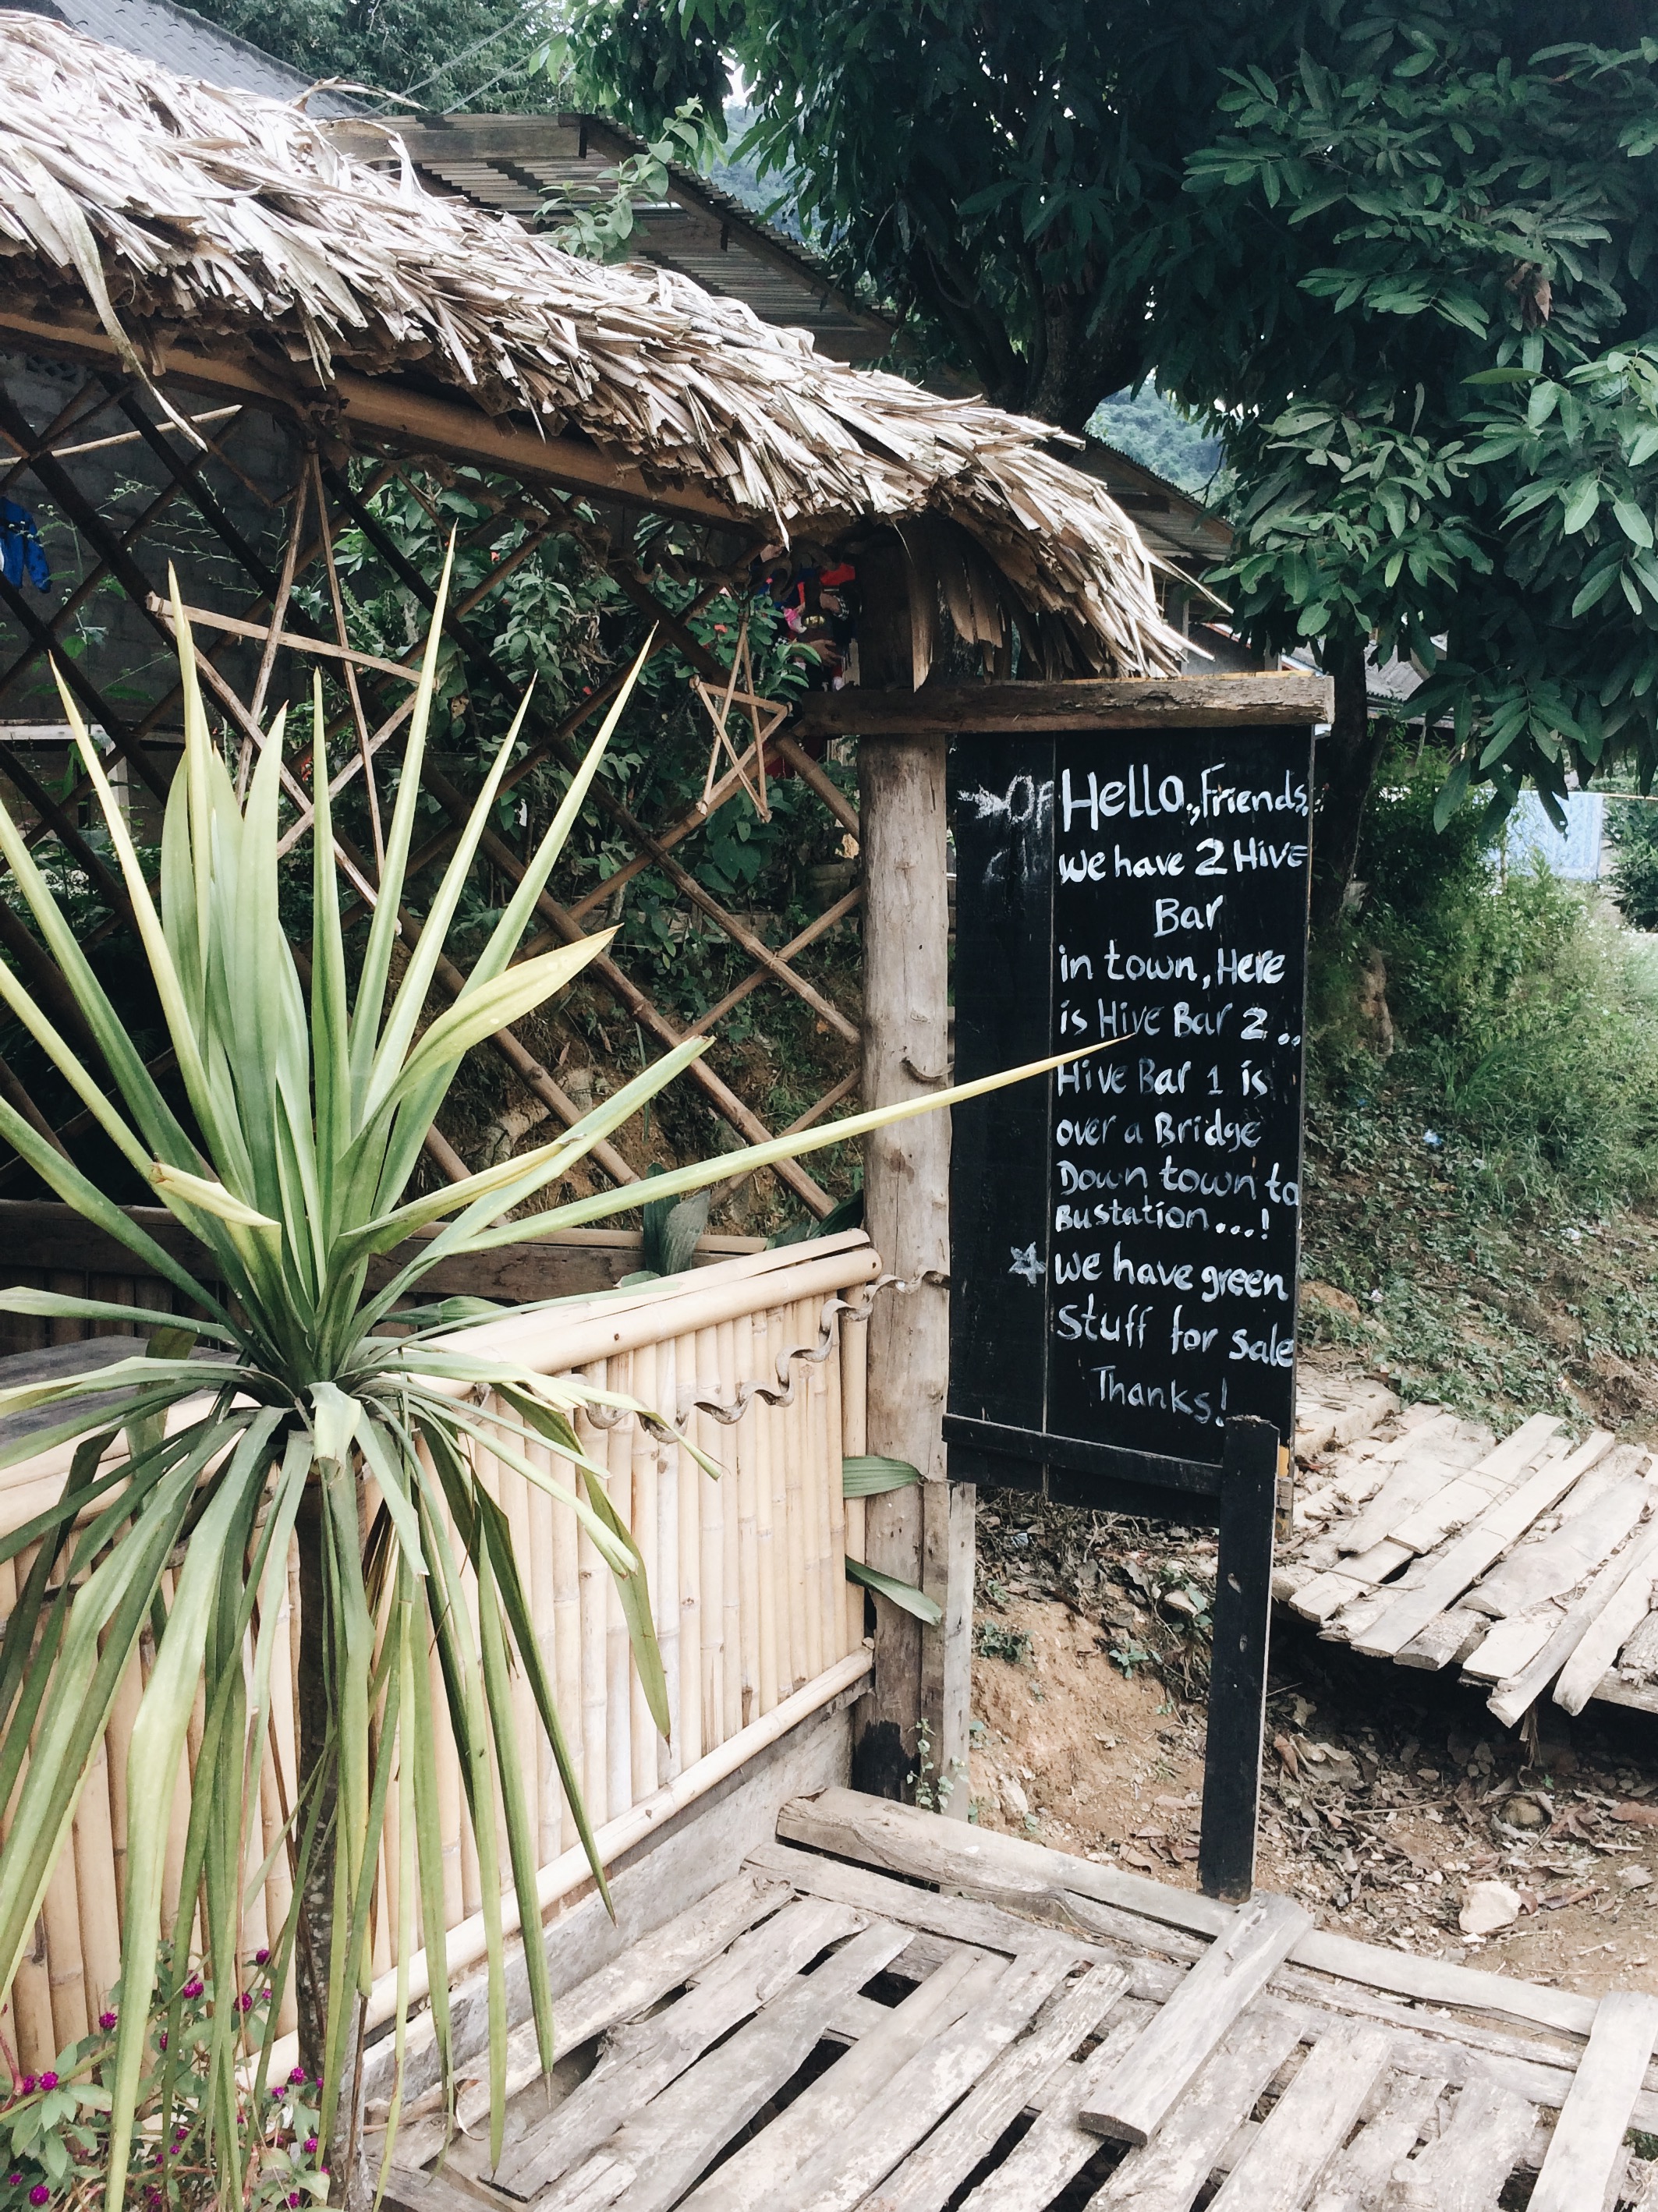 Hello, Friends,
We have 2 Hive
Bar
in town, Here
is Hive Bar 2..
Hive Bar 1 is
over a Bridge
Down town to
Bustation...!
We have green
Stuff for sale
Thanks!